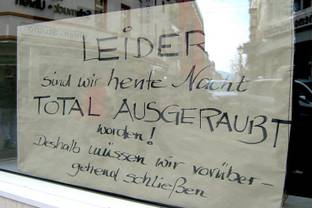 LEIDER
sind wir heute Nacht
TOTAL AUSGERAUßT
worden!
Deshalb müssen wir vorüber-
gehend schließen